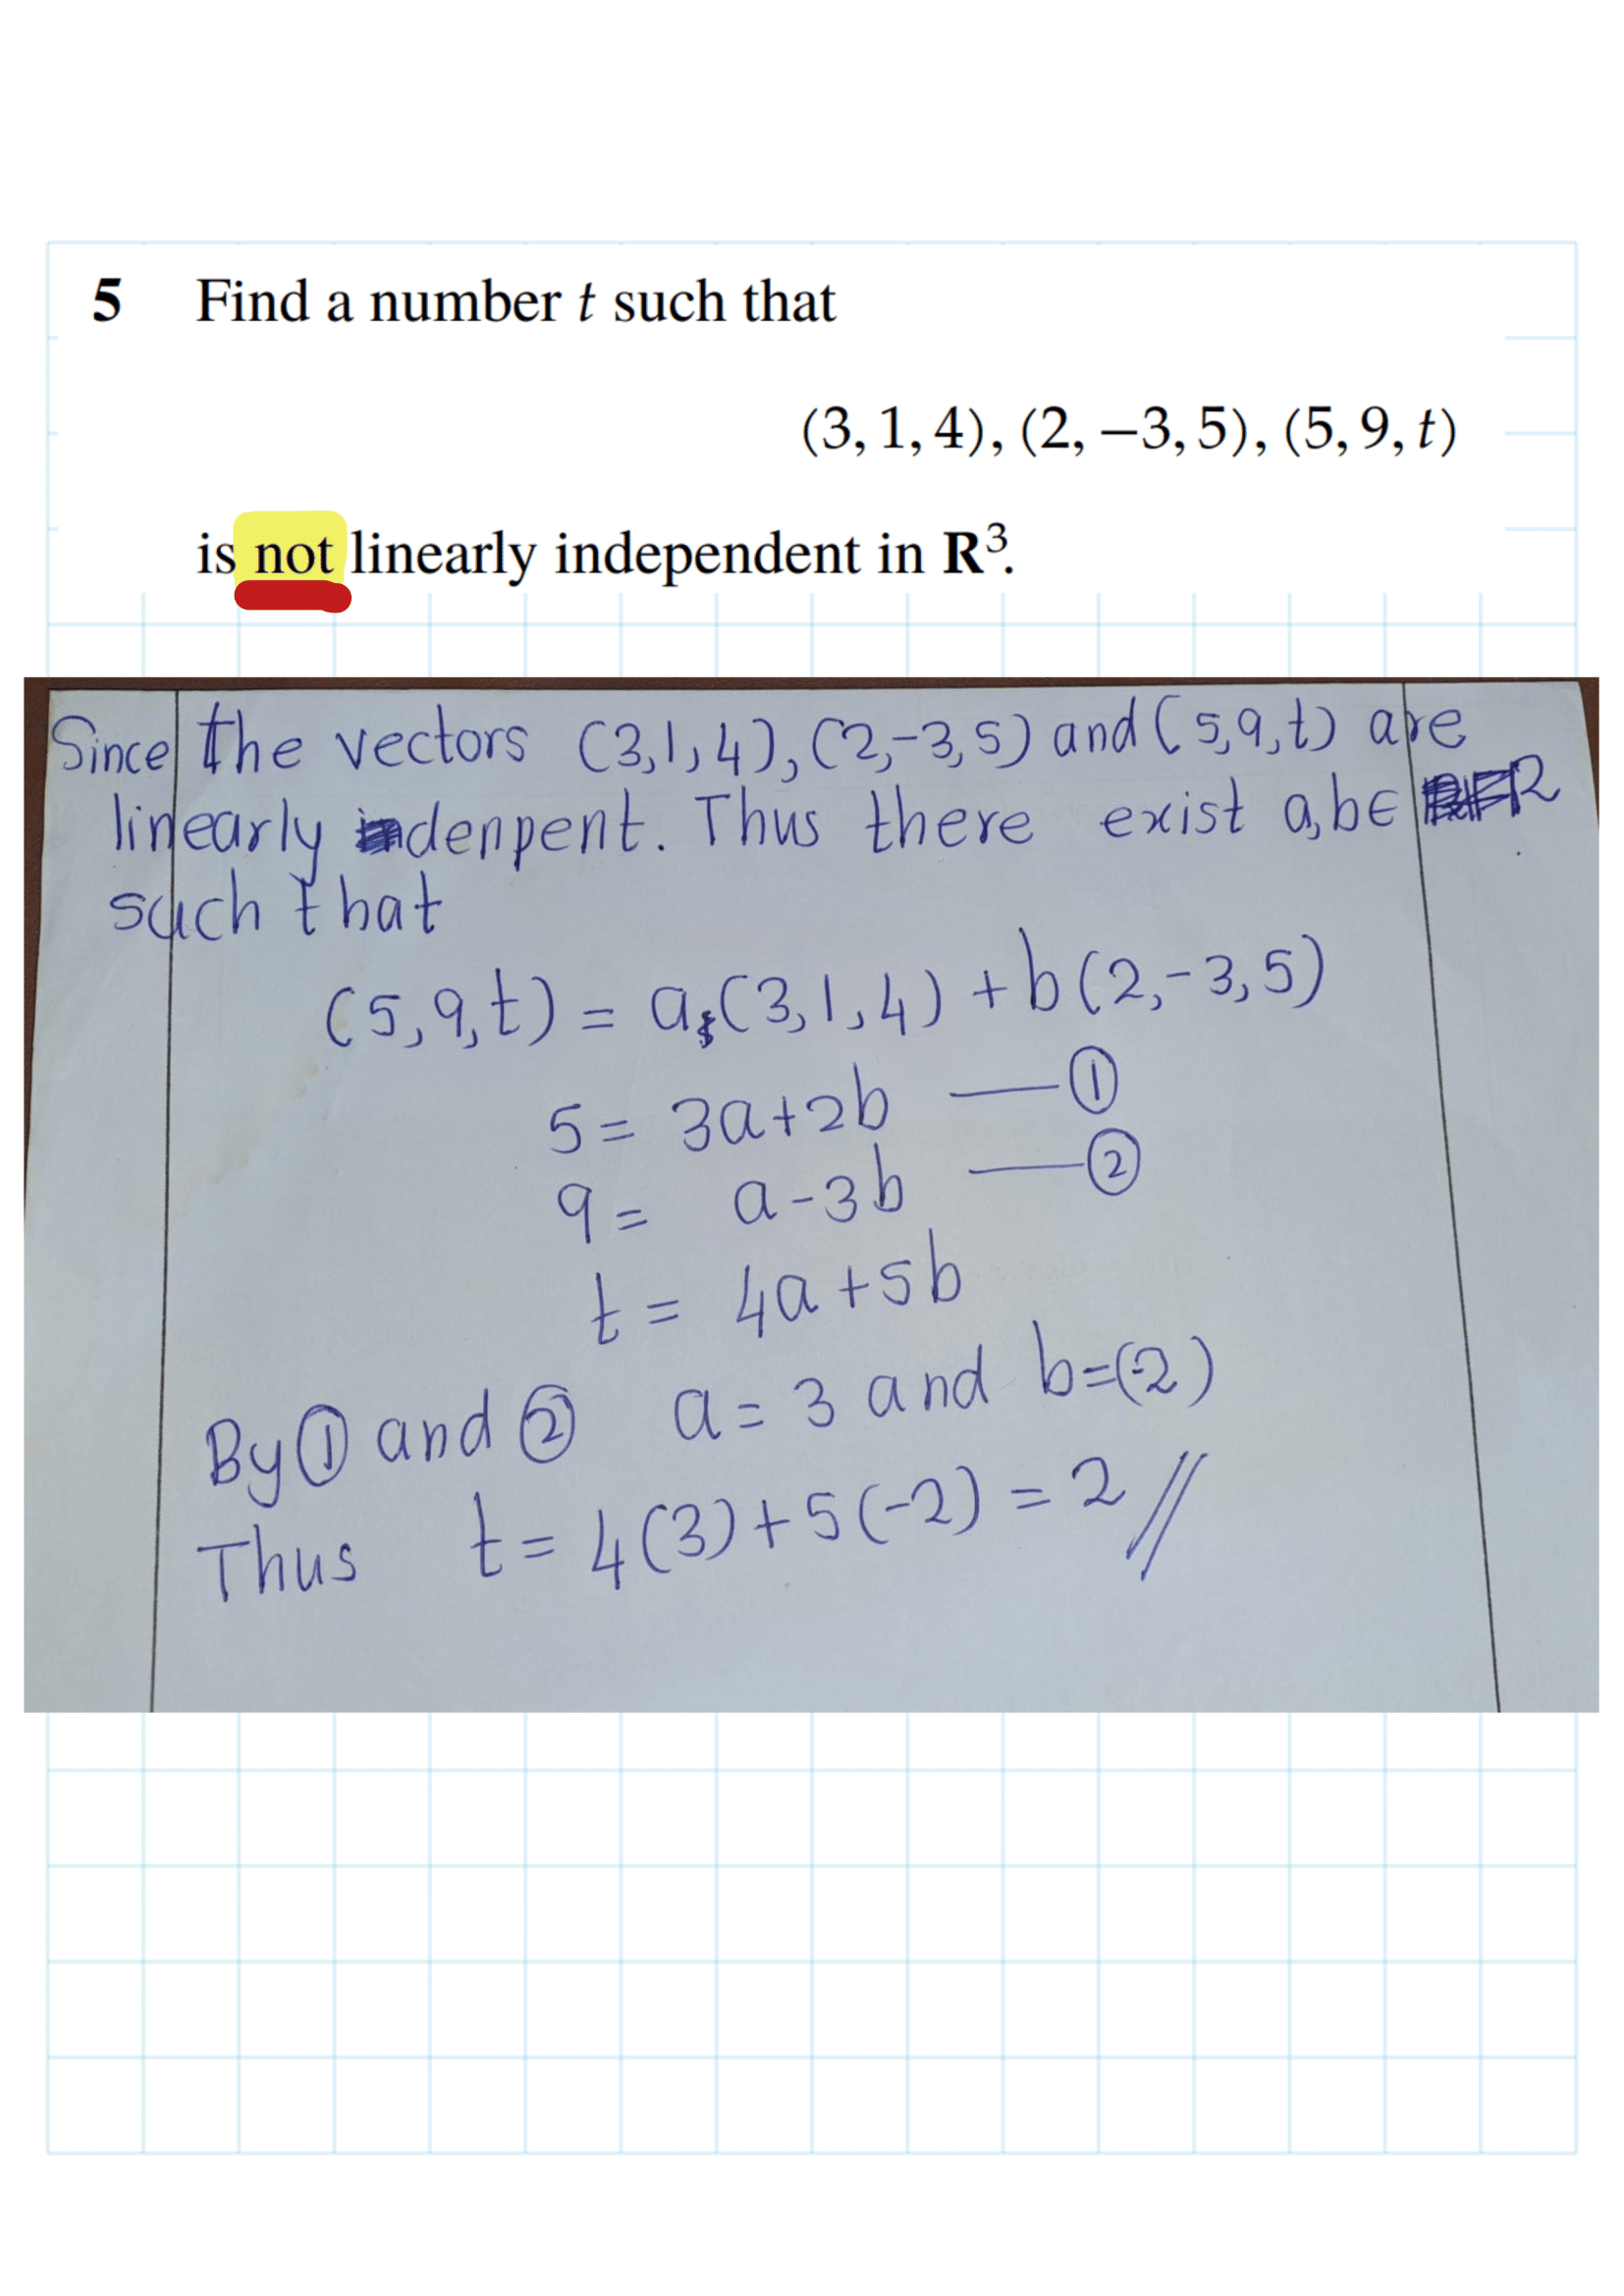 5 Find a number t such that
(3, 1, 4), (2, −3, 5), (5, 9, t)
is not linearly independent in R³.
Since the vectors (3,1,4), (2,-3,5) and (5,9,t) are
linearly denpent. Thus there exist a,b∈ R
such that
(5,9,t) = a(3,1,4) + b(2,-3,5)
5 = 3a+2b —①
9 = a-3b —②
t = 4a+5b
By ① and ② a = 3 and b=(-2)
Thus t = 4(3)+5(-2) = 2 //